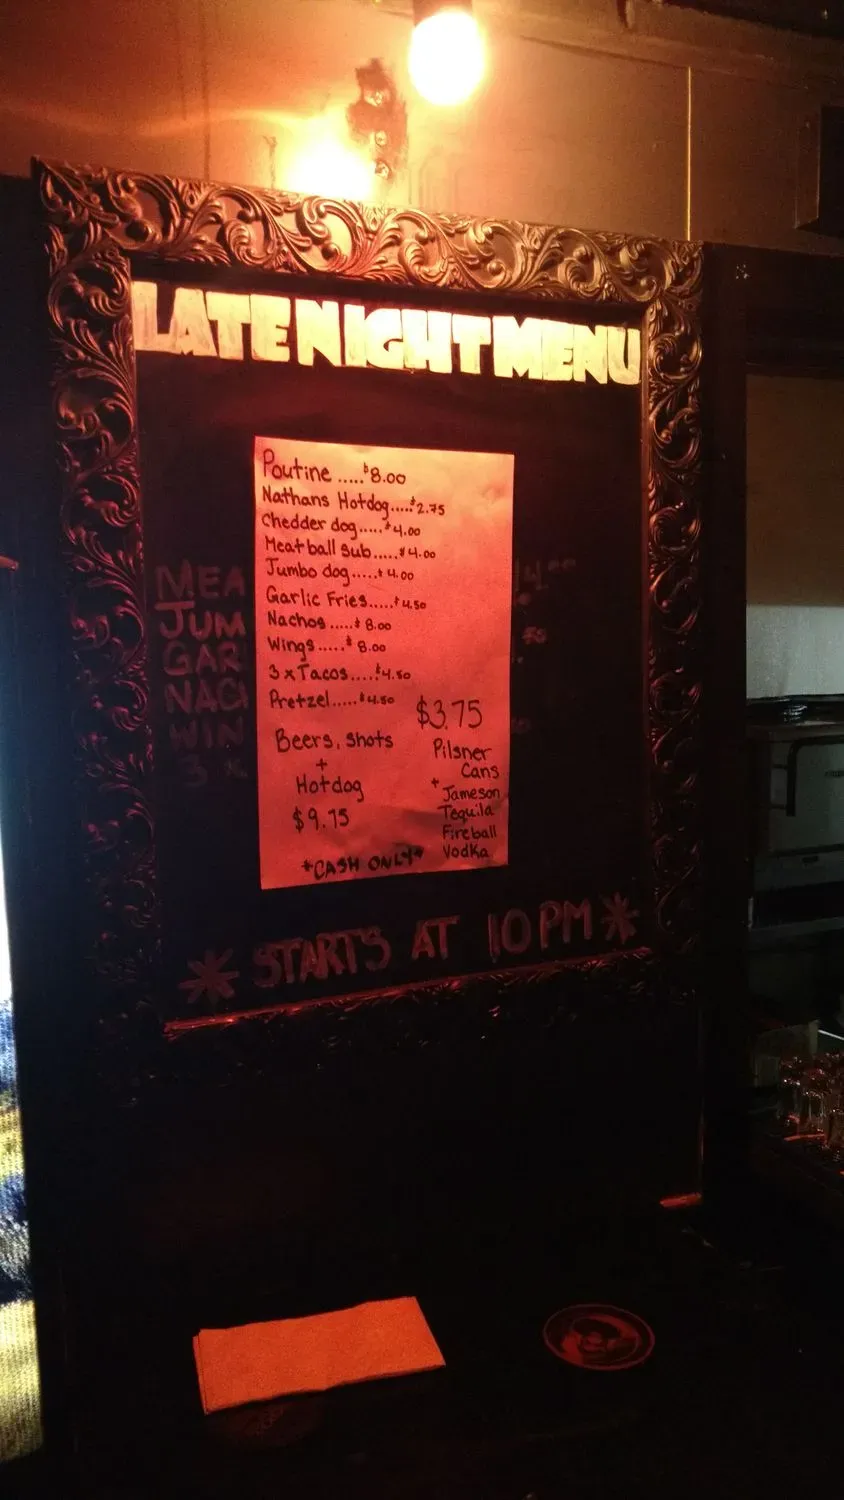 LATE NIGHT MENU
Poutine.....$8.00
Nathans Hotdog....$2.75
Chedder dog.....$4.00
Meatball sub.....$4.00
Jumbo dog.....$4.00
Garlic Fries.....$4.50
Nachos.....$8.00
Wings.....$8.00
3x Tacos.....$4.50
Pretzel.....$4.50
Beers, shots
+
Hotdog
$9.75
$3.75
Pilsner
Cans
+ Jameson
Tequila
Fireball
Vodka
*CASH ONLY*
MEA
JUM
GAR
NACH
WIN
3 x
* STARTS AT 10PM *